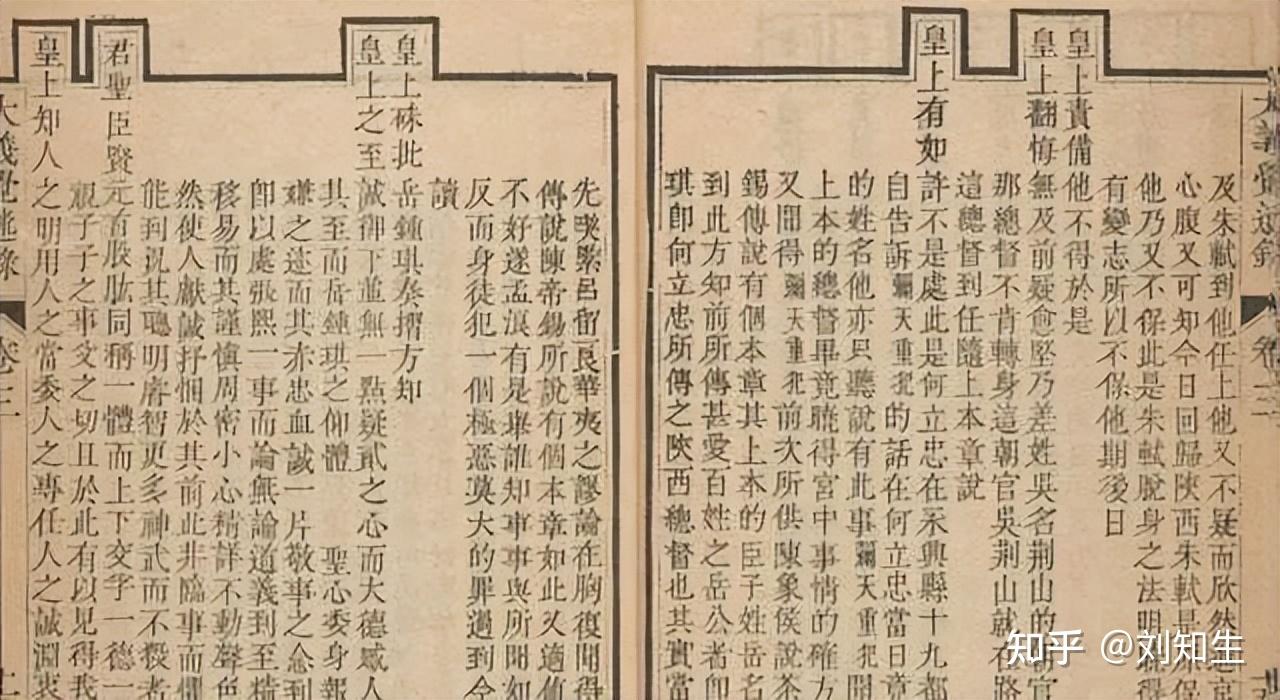 大義覺迷錄 卷三
及朱軾到他任上他又不疑而欣然
心腹又可知今日回歸陝西朱軾是
他乃又不保此是朱軾脫身之法明
有變志所以不保他期後日
皇上責備他不得於是
皇上翻悔無及前疑愈堅乃差姓吳名荆山的朝官
那總督不肯轉身這朝官吳荆山就在路
這總督到任隨上本章說
皇上有如許不是處此是何立忠在永興縣十九都
自告訴彌天重犯的話在何立忠當日章
的姓名他亦只聽說有此事彌天重犯聞
上本的總督畢竟曉得宮中事情的確方
又聞得彌天重犯前次所供陳象侯說茶
錫傳說有個本章其上本的臣子姓岳名
到此方知前所傳甚愛百姓之岳公者即
琪卽何立忠所傳之陝西總督也其實當
先喫緊呂留良華夷之謬論在胸復聞得
傳說陳帝錫所說有個本章如此又適值
不好遂孟浪有是舉誰知事事與所聞如
反而身徒犯一個極惡莫大的罪過到今
讀
皇上硃批岳鍾琪奏摺方知
皇上之至誠御下並無一點疑貳之心而大德感人
其至而岳鍾琪之仰體 聖心委身報
嫌之迹而其赤忠血誠一片敬事之念到
卽以處張熙一事而論無論道義到至精
移易而其謹慎周密小心精詳不動聲色
然使人獻誠抒悃於其前此非臨事而懼
能到況其聰明睿智更多神武而不殺者
君聖臣賢元首股肱同稱一體而上下交孚一德一
親子子之事父之切且於此有以見得我
皇上知人之明用人之當委人之專任人之誠淵衷
大義覺迷錄 卷三
知乎 @刘知生